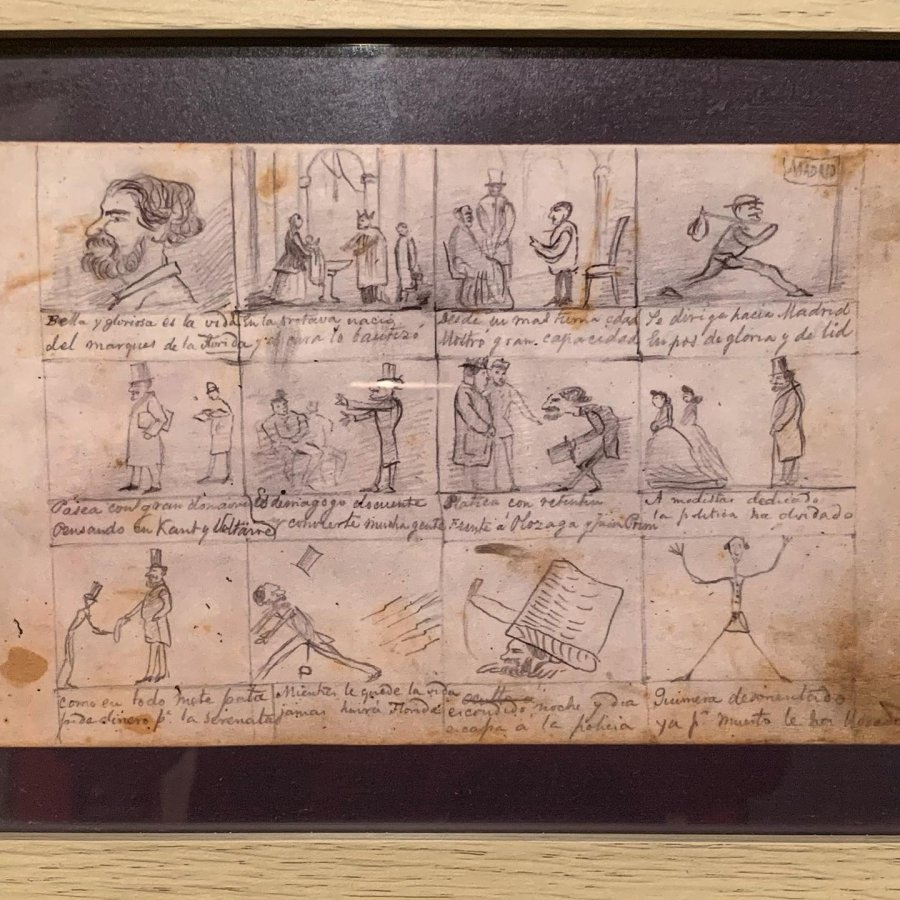 MADRID
Bella y gloriosa es la vida
del marques de la Florida
En la Orotava nació
y el cura lo bautizó
Desde su mas tierna edad
Mostro gran capacidad
Se dirige hacia Madrid
En pos de gloria y de lid
Pasea con gran
Pensando en Kant y Voltaire
Es demagogo
y convierte mucha gente
Platica con retintin
Frente á Olozaga y Juan Prim
A modistas dedicado
la politica ha olvidado
como en todo mete pata
pide dinero pª la serenata
Mientras le quede la vida
jamas huirá Florida
escondido noche y dia
escapa á la policia
Guimera desorientado
ya pr muerto le ha llorado